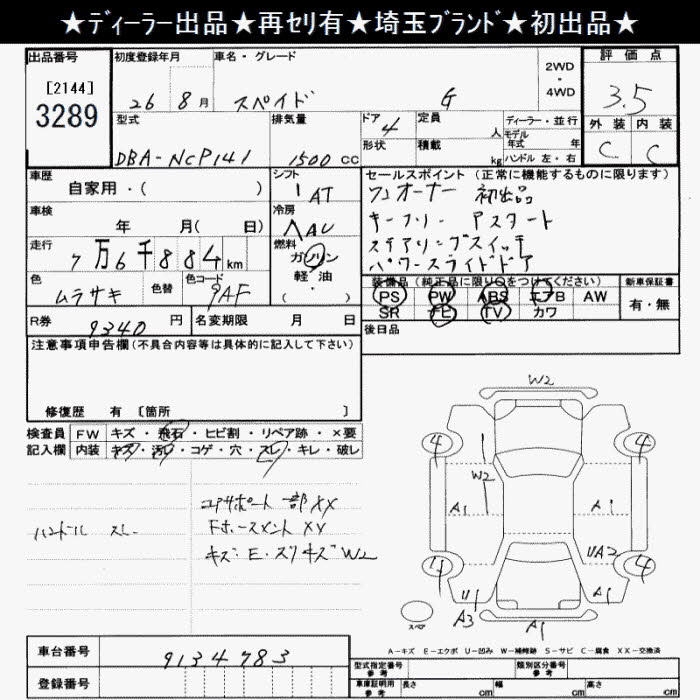 ★ディーラー出品★再セリ有★埼玉ブランド★初出品★
出品番号
[2144]
3289
初度登録年月
26 8月
車名・グレード
スペイド G
2WD
・
4WD
評価点
3.5
外装 内装
C C
型式
DBA-NCP141
排気量
1500cc
ドア 4
形状
定員 人
積載 kg
ディーラー・並行
モデル
年式 年
ハンドル 左・右
車歴
自家用・( )
シフト
AT
車検
年 月( 日)
冷房
AAC
走行
7万6千884km
燃料
ガソリン
軽・油
( )
色
ムラサキ
色替
色コード
9AF
R券 9340円
名変期限 月 日
セールスポイント (正常に機能するものに限ります)
ワンオーナー 初出品
キーフリー アスタート
ステアリングスイッチ
パワースライドドア
装備品(純正品に限り○をつけてください)
PS PW ABS エアB AW
SR ナビ TV カワ
新車保証書
有・無
後日品
注意事項申告欄(不具合内容等は具体的に記入して下さい)
修復歴 有 [箇所 ]
検査員
記入欄
FW キズ・飛石・ヒビ割・リペア跡・×要
内装 キズ・汚レ・コゲ・穴・スレ・キレ・破レ
ハンドル スレ
コアサポート 一部XX
Fホースメント XX
キズ・E・スリキズ W2
W2
4 4
W2
A1 A1
UA2
4 4
U1 A1
A3
A1
スペア
A-キズ E-エクボ U-凹み W-補修跡 S-サビ C-腐食 XX-交換済
車台番号 9134783
登録番号
型式指定番号
参考
類別区分番号
参考
車庫証明用
参考
長さ cm 幅 cm 高さ cm